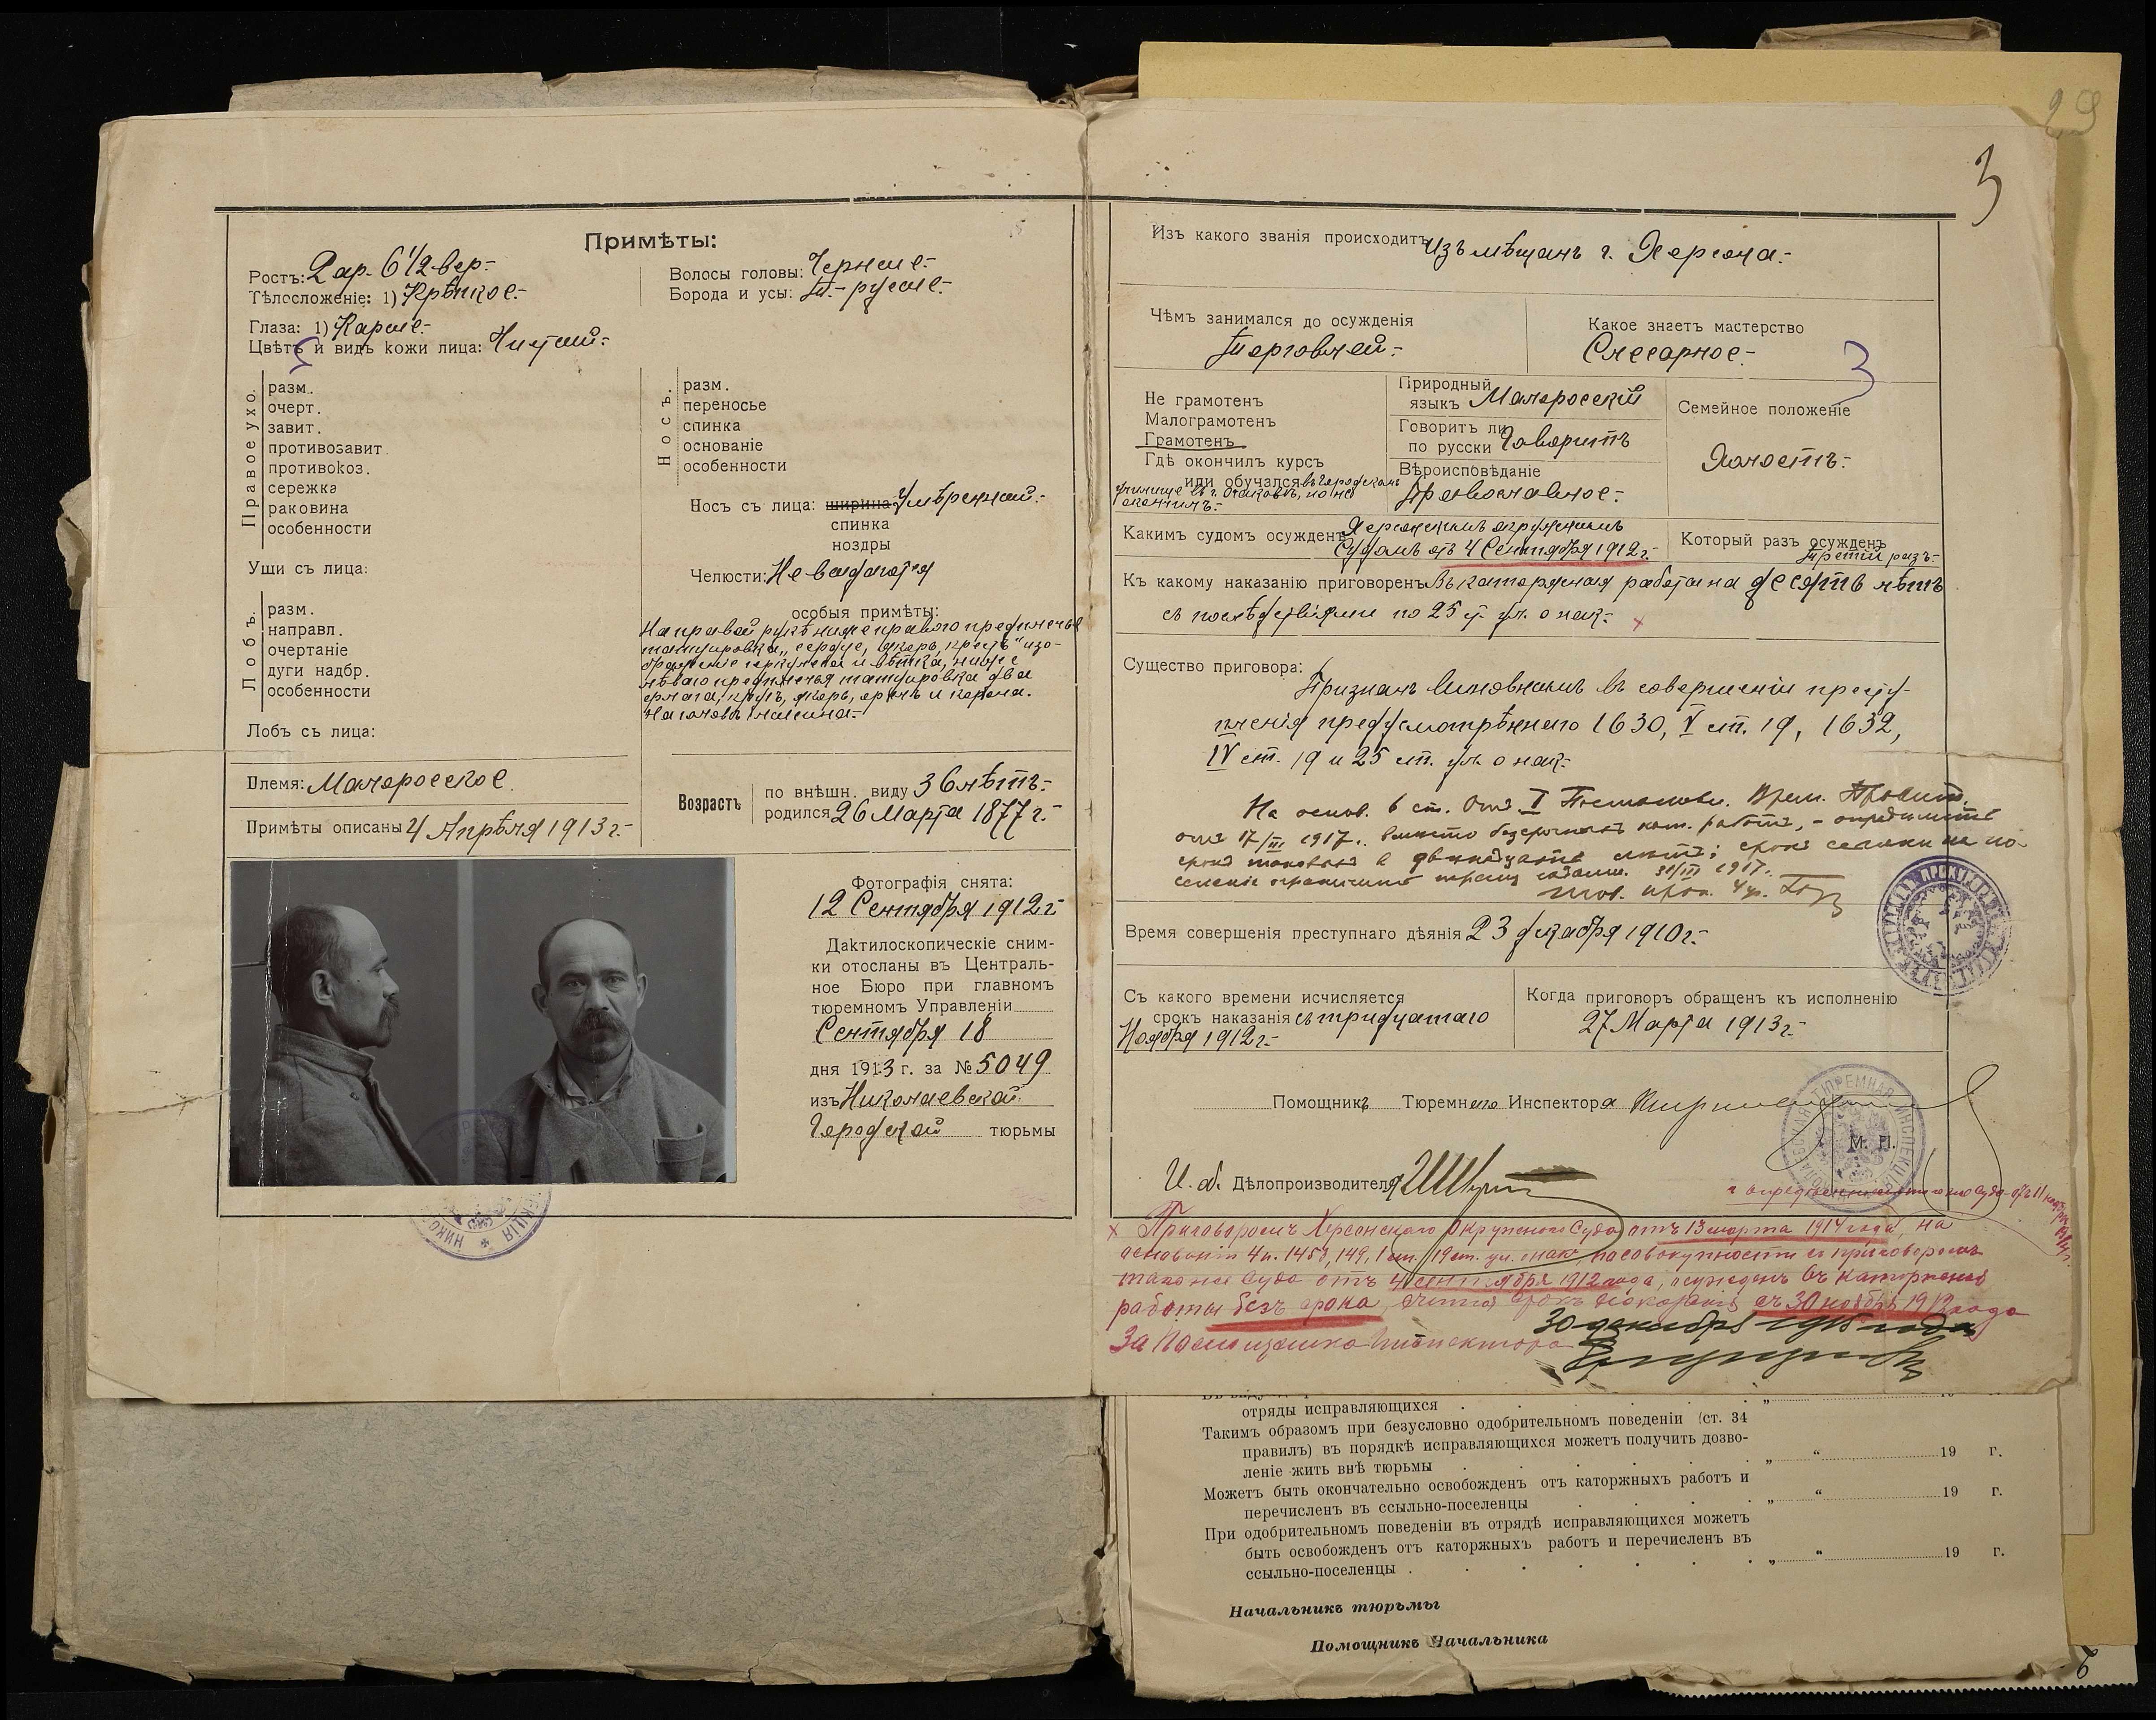 Примѣты:
Ростъ: 2 ар. 6 1/2 вер.
Тѣлосложеніе: 1) Крѣпкое.
Глаза: 1) Каріе.
Цвѣтъ и видъ кожи лица: Чистый.
Волосы головы: Черные.
Борода и усы: Т.-русые.
Правое ухо.
разм.
очерт.
завит.
противозавит.
противокоз.
сережка
раковина
особенности
Уши съ лица:
Лобъ.
разм.
направл.
очертаніе
дуги надбр.
особенности
Лобъ съ лица:
Носъ.
разм.
переносье
спинка
основаніе
особенности
Носъ съ лица: ширина Умѣренный.
спинка
ноздры
Челюсти: Не выдаются
особыя примѣты:
На правой рукѣ ниже праваго предплечья
татуировка „сердце, якорь, крестъ" изо-
браженіе и вѣтка, ниже
лѣваго предплечья татуировка два
якорь, орелъ и корона.
На головѣ лысина.
Племя: Малоросское.
Примѣты описаны 4 Апрѣля 1913 г.
Возрастъ
по внѣшн. виду 36 лѣтъ.
родился 26 Марта 1877 г.
Фотографія снята:
12 Сентября 1912 г.
Дактилоскопическіе сним-
ки отосланы въ Централь-
ное Бюро при главномъ
тюремномъ Управленіи
Сентября 18
дня 1913 г. за № 5049
изъ Николаевской
Городской тюрьмы
29
3
Изъ какого званія происходитъ Изъ мѣщанъ г. Херсона.
Чѣмъ занимался до осужденія
Торговлей.
Какое знаетъ мастерство
Слесарное.
3
Не грамотенъ
Малограмотенъ
Грамотенъ
Гдѣ окончилъ курсъ
или обучался въ городском
училище въ г. Очаковѣ, но не
окончилъ.
Природный
языкъ Малоросскій
Говоритъ ли
по русски Говоритъ
Вѣроисповѣданіе
Православное.
Семейное положеніе
Холостъ.
Какимъ судомъ осужденъ Херсонскимъ окружнымъ
Судомъ отъ 4 Сентября 1912 г.
Который разъ осужденъ
Третій разъ.
Къ какому наказанію приговоренъ Въ каторжныя работы на десять лѣтъ
съ послѣдствіями по 25 ст. ул. о нак.
Существо приговора:
Признанъ виновнымъ въ совершеніи престу-
пленія предусмотрѣннаго 1630, V ст. 19, 1632,
IV ст. 19 и 25 ст. ул. о нак.
На основ. 6 ст. Отд. I Постановл. Врем. Правит.
отъ 17/III 1917 г. вместо безсрочныхъ кат. работъ, - определить
срокъ таковыхъ в двенадцать летъ; срокъ ссылки на по-
селеніе ограничить тремя годами. 31/III 1917.
Тов. прок.
Время совершенія преступнаго дѣянія 23 декабря 1910 г.
Съ какого времени исчисляется
срокъ наказанія съ тридцатаго
Ноября 1912 г.
Когда приговоръ обращенъ къ исполненію
27 Марта 1913 г.
Помощникъ Тюремнаго Инспектора
М. П.
И. д. Дѣлопроизводителя
и опредѣленіемъ того же Суда отъ 11
Приговоромъ Херсонскаго Окружнаго Суда отъ 13 марта 1914 года, на
основаніи 4 п. 1453, 149, 1 ст. 19 ст. ул. о нак., по совокупности съ приговоромъ
того же Суда отъ 4 сентября 1912 года, осужденъ въ каторжныя
работы безъ срока, считая срокъ наказанія съ 30 ноября 1912 года
30 декабря 1915 года
За Помощника Инспектора
отряды исправляющихся
Такимъ образомъ при безусловно одобрительномъ поведеніи (ст. 34
правилъ) въ порядкѣ исправляющихся можетъ получить дозво-
леніе жить внѣ тюрьмы „ “ 19 г.
Можетъ быть окончательно освобожденъ отъ каторжныхъ работъ и
перечисленъ въ ссыльно-поселенцы „ “ 19 г.
При одобрительномъ поведеніи въ отрядѣ исправляющихся можетъ
быть освобожденъ отъ каторжныхъ работъ и перечисленъ въ
ссыльно-поселенцы . „ “ 19 г.
Начальникъ тюрьмы
Помощникъ Начальника